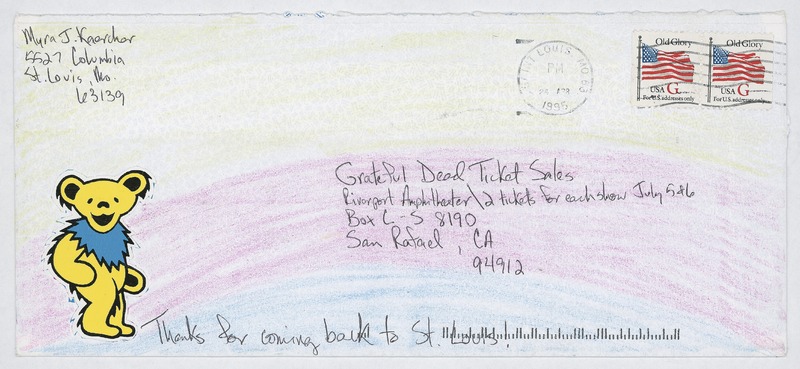 Myra J. Kaercher
5527 Columbia
St. Louis, Mo.
63139
ST LOUIS MO
PM
1995
Old Glory
USA G
For U.S. addresses only
Old Glory
USA G
For U.S. addresses only
Grateful Dead Ticket Sales
Riverport Amphitheater\2 tickets for each show July 5+6
Box C-S 8190
San Rafael, CA
94912
Thanks for coming back to St. Louis.